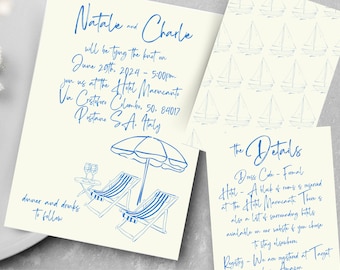 Natalie and Charlie
will be tying the knot on
June 29th, 2024 - 5:00pm
join us at the Hotel Marincanto
Via Cristoforo Colombo, 50, 84017
Positano S.A, Italy
dinner and drinks
to follow
the Details
Dress Code - Formal
Hotel - A block of rooms is reserved
at the Hotel Marincanto. There is
also a list of surrounding hotels
available on our website if you choose
to stay elsewhere.
Registry - We are registered at Target
Amazon